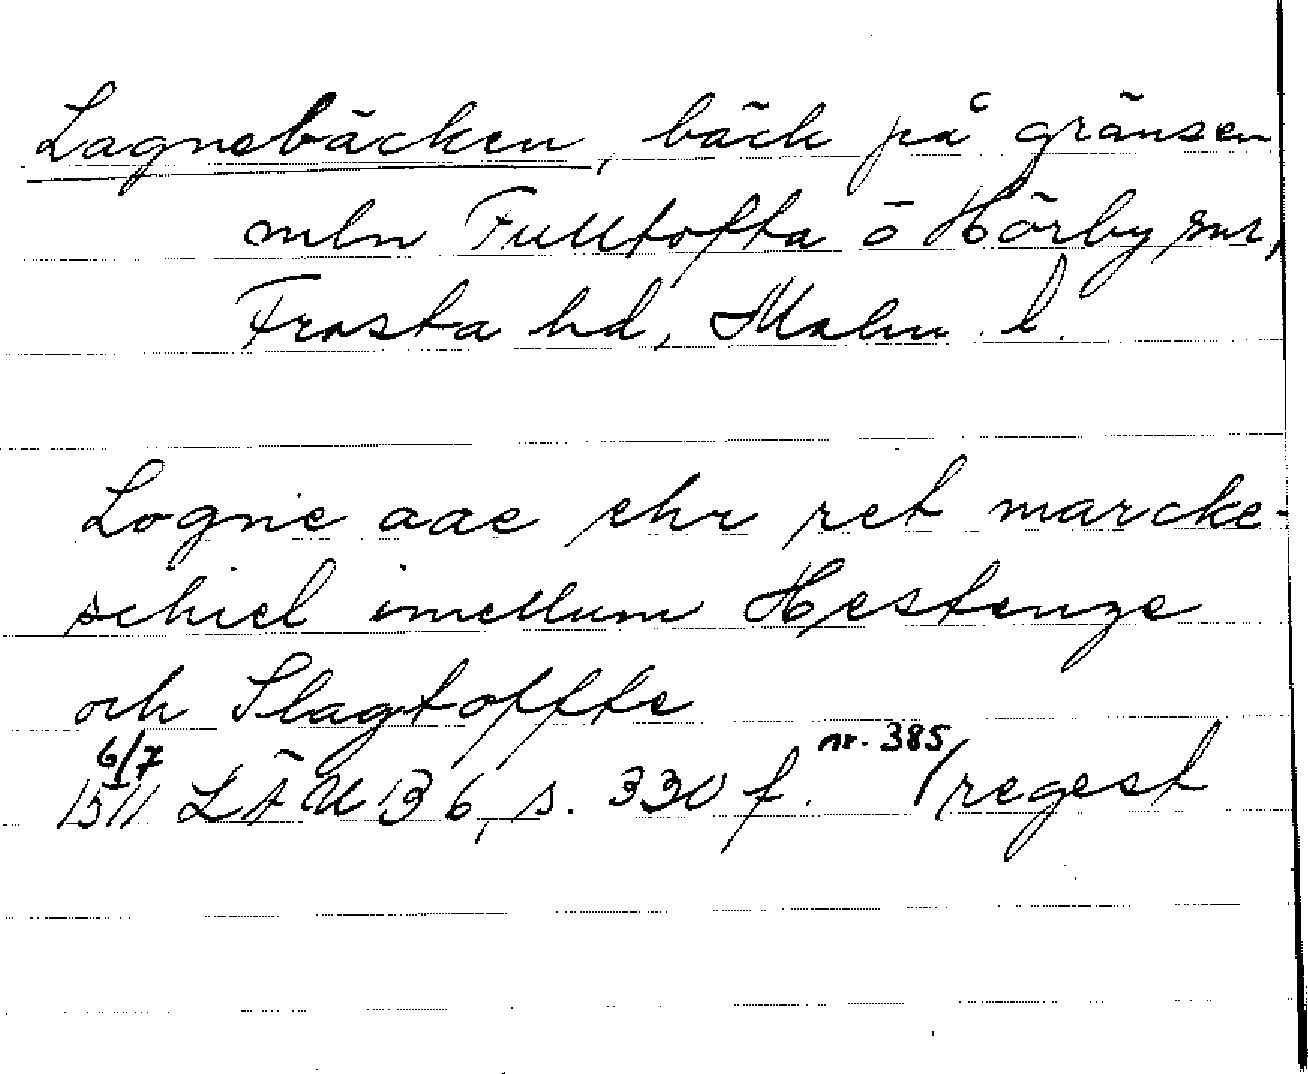 Lagnebäcken, bäck på gränsen
mln Fulltofta o Hörby snr,
Frosta hd, Malm. l.
Logne aae ehr ret marcke-
schiel imellum Hestenge
och Slagtoffte
6/7 1511 LÄU B 6, s. 330 f. nr. 385/regest